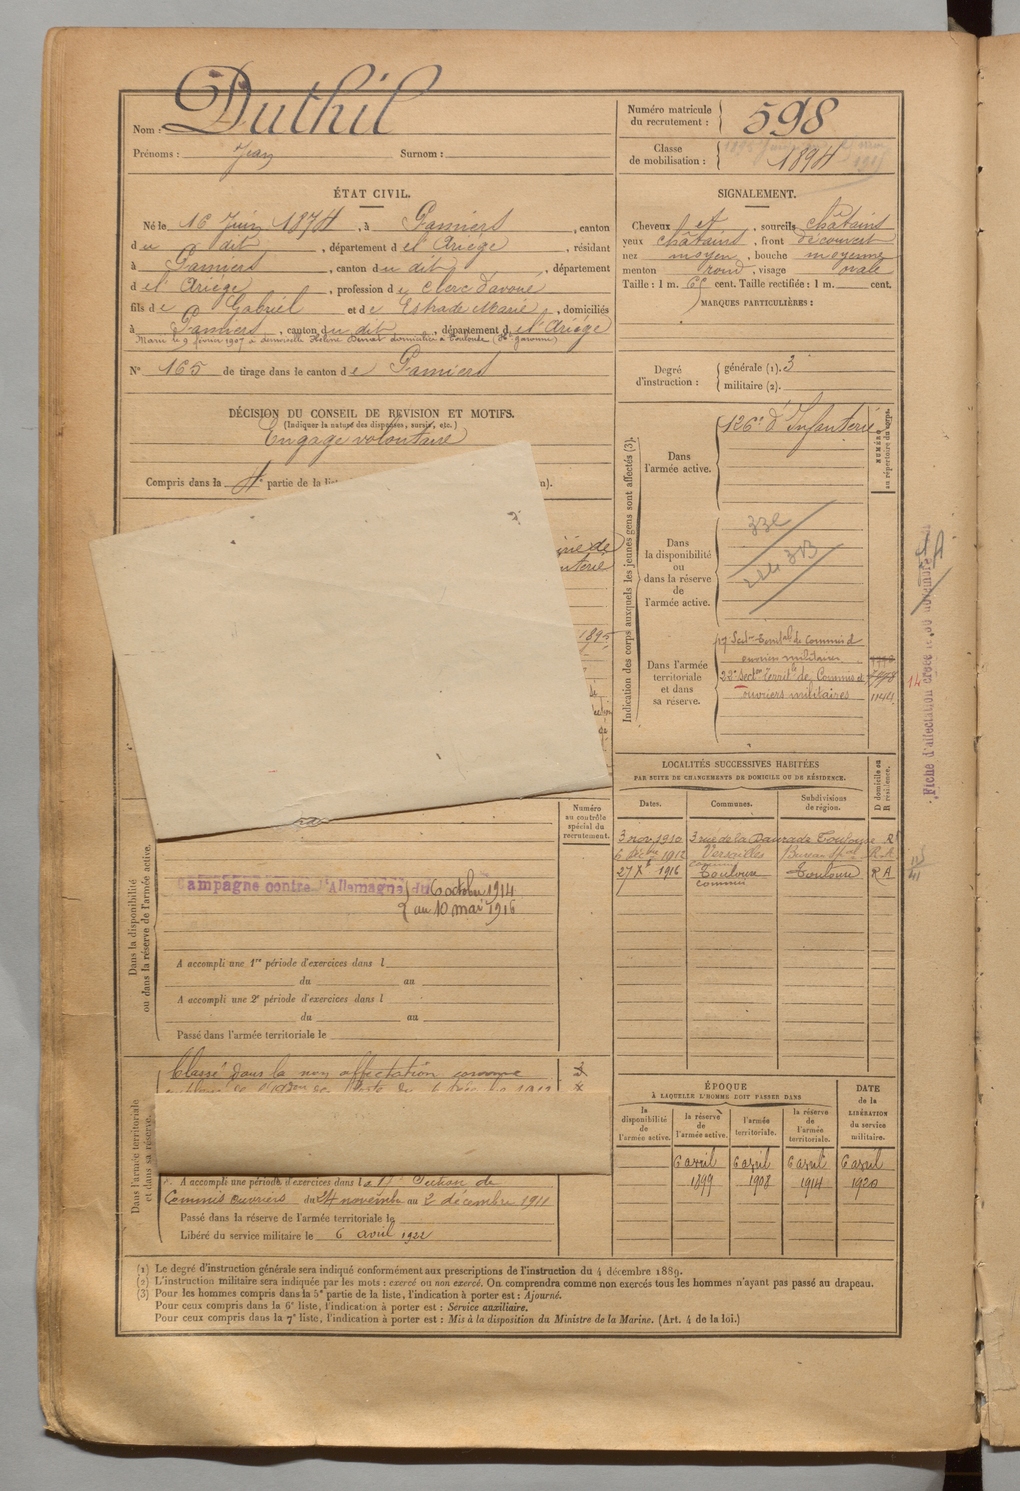 Nom : Duthil
Prénoms : Jean Surnom :
ÉTAT CIVIL.
Né le 16 Juin 1874, à Pamiers, canton
du dit, département de l'Ariège, résidant
à Pamiers, canton du dit, département
de l'Ariège, profession de clerc d'avoué
fils de Gabriel et de Estrade Marie, domiciliés
à Pamiers, canton du dit, département de l'Ariège
Marié le 9 février 1907 à demoiselle Hélène domiciliée à Toulouse (Hte Garonne)
N° 165 de tirage dans le canton de Pamiers
DÉCISION DU CONSEIL DE REVISION ET MOTIFS.
(Indiquer la nature des dispenses, sursis, etc.)
Engagé volontaire
Compris dans la 4e partie de la liste
1895
Numéro au contrôle spécial du recrutement.
Dans la disponibilité ou dans la réserve de l'armée active.
Campagne contre l'Allemagne du 6 octobre 1914
au 10 mai 1916
A accompli une 1re période d'exercices dans l
du au
A accompli une 2e période d'exercices dans l
du au
Passé dans l'armée territoriale le
Dans l'armée territoriale et dans sa réserve.
Classé dans la non affectation comme
A accompli une période d'exercices dans la Section de
Commis ouvriers du 24 novembre au 2 décembre 1911
Passé dans la réserve de l'armée territoriale le
Libéré du service militaire le 6 avril 1922
Numéro matricule du recrutement : 598
Classe de mobilisation : 1894
SIGNALEMENT.
Cheveux et, sourcils châtains
yeux châtains, front découvert
nez moyen, bouche moyenne
menton rond, visage ovale
Taille : 1 m. 65 cent. Taille rectifiée : 1 m. cent.
MARQUES PARTICULIÈRES :
Degré d'instruction : générale (1). 3
militaire (2).
Indication des corps auxquels les jeunes gens sont affectés (3).
NUMÉRO au répertoire du corps.
Dans l'armée active.
126e d'Infanterie
Dans la disponibilité ou dans la réserve de l'armée active.
Dans l'armée territoriale et dans sa réserve.
17 Section territle de Commis et
ouvriers militaires
22e Sectn Territle de Commis et
ouvriers militaires
Fiche d'affectation
LOCALITÉS SUCCESSIVES HABITÉES
PAR SUITE DE CHANGEMENTS DE DOMICILE OU DE RÉSIDENCE.
Dates. Communes. Subdivisions de région. D domicile ou R résidence.
3 nov. 1910 3 rue de la Daurade Toulouse R
1912 Versailles R.A
27 Xbre 1916 Toulouse Toulouse R A
ÉPOQUE
À LAQUELLE L'HOMME DOIT PASSER DANS
la disponibilité de l'armée active. la réserve de l'armée active. l'armée territoriale. la réserve de l'armée territoriale. DATE de la LIBÉRATION du service militaire.
6 avril 6 avril 6 avril 6 avril
1899 1908 1914 1920
(1) Le degré d'instruction générale sera indiqué conformément aux prescriptions de l'instruction du 4 décembre 1889.
(2) L'instruction militaire sera indiquée par les mots : exercé ou non exercé. On comprendra comme non exercés tous les hommes n'ayant pas passé au drapeau.
(3) Pour les hommes compris dans la 5e partie de la liste, l'indication à porter est : Ajourné.
Pour ceux compris dans la 6e liste, l'indication à porter est : Service auxiliaire.
Pour ceux compris dans la 7e liste, l'indication à porter est : Mis à la disposition du Ministre de la Marine. (Art. 4 de la loi.)